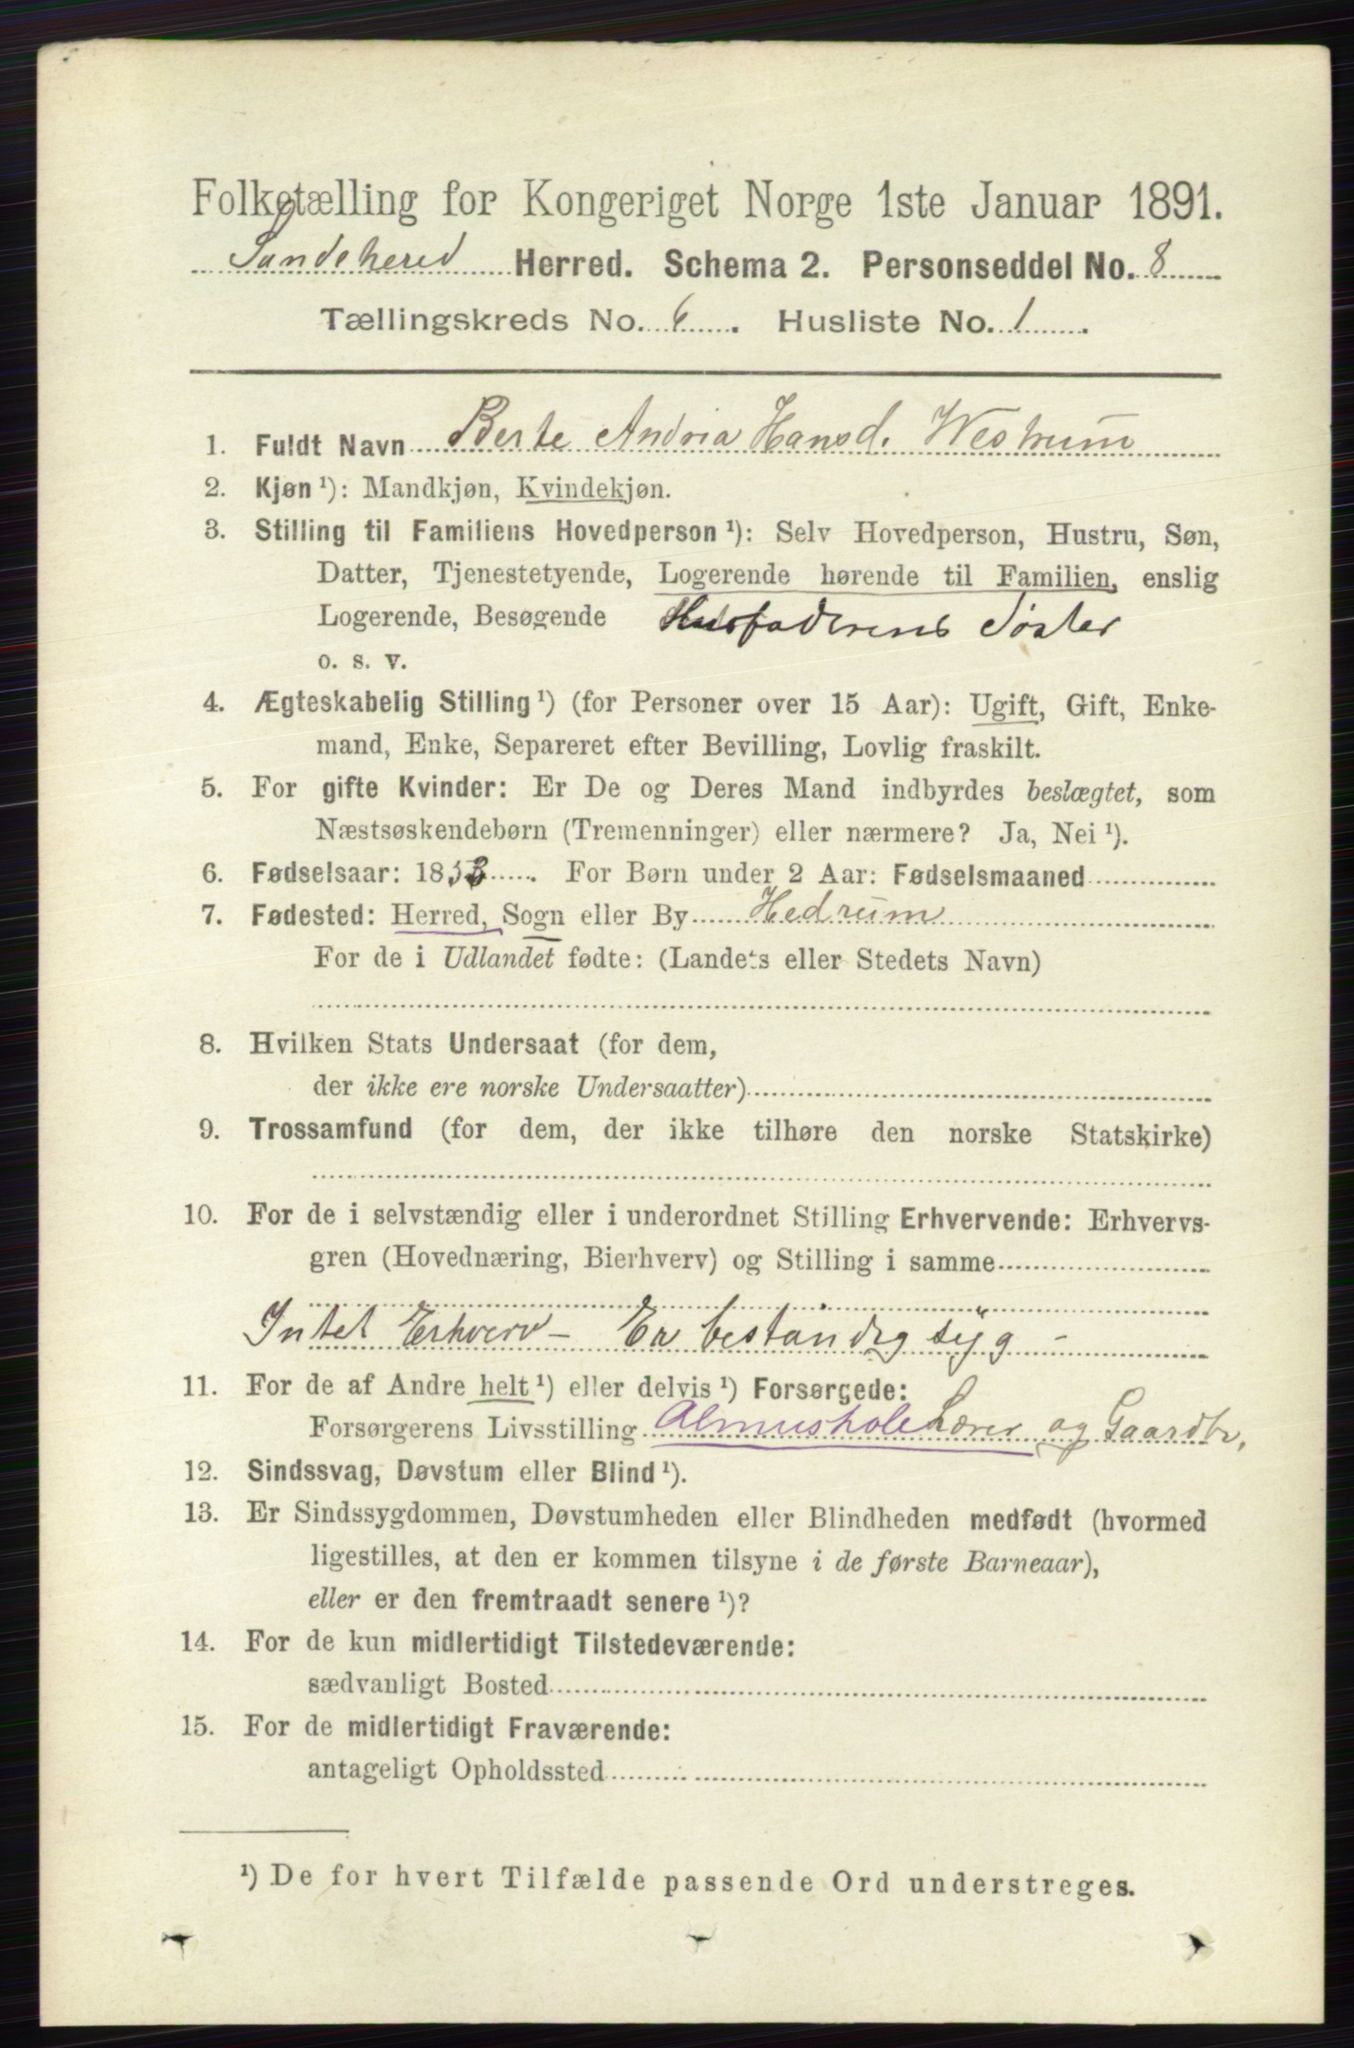 Folketælling for Kongeriget Norge 1ste Januar 1891.
Sandehered Herred. Schema 2. Personseddel No. 8
Tællingskreds No. 6. Husliste No. 1.
1. Fuldt Navn Berte Andria Hansd. Westrum
2. Kjøn ¹): Mandkjøn, Kvindekjøn.
3. Stilling til Familiens Hovedperson ¹): Selv Hovedperson, Hustru, Søn,
Datter, Tjenestetyende, Logerende hørende til Familien, enslig
Logerende, Besøgende Husfaderens Søster
o. s. v.
4. Ægteskabelig Stilling ¹) (for Personer over 15 Aar): Ugift, Gift, Enke-
mand, Enke, Separeret efter Bevilling, Lovlig fraskilt.
5. For gifte Kvinder: Er De og Deres Mand indbyrdes beslægtet, som
Næstsøskendebørn (Tremenninger) eller nærmere? Ja, Nei ¹).
6. Fødselsaar: 1853. For Børn under 2 Aar: Fødselsmaaned
7. Fødested: Herred, Sogn eller By Hedrum
For de i Udlandet fødte: (Landets eller Stedets Navn)
8. Hvilken Stats Undersaat (for dem,
der ikke ere norske Undersaatter)
9. Trossamfund (for dem, der ikke tilhøre den norske Statskirke)
10. For de i selvstændig eller i underordnet Stilling Erhvervende: Erhvervs-
gren (Hovednæring, Bierhverv) og Stilling i samme
Intet Erhverv – Er bestandig syg –
11. For de af Andre helt ¹) eller delvis ¹) Forsørgede:
Forsørgerens Livsstilling Almuskole Lærer og Gaardbr,
12. Sindssvag, Døvstum eller Blind ¹).
13. Er Sindssygdommen, Døvstumheden eller Blindheden medfødt (hvormed
ligestilles, at den er kommen tilsyne i de første Barneaar),
eller er den fremtraadt senere ¹)?
14. For de kun midlertidigt Tilstedeværende:
sædvanligt Bosted
15. For de midlertidigt Fraværende:
antageligt Opholdssted
¹) De for hvert Tilfælde passende Ord understreges.